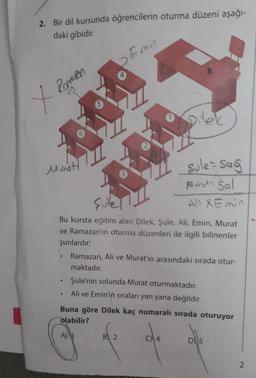 2. Bir dil kursunda öğrencilerin oturma düzeni aşağı-
daki gibidir.
Emin
Ramazan
4
5
1
Dilek
6
2
Murat
3
Şule
Şule = Sağ
Murat = Sol
Ali X Emin
Bu kursta eğitim alan Dilek, Şule, Ali, Emin, Murat
ve Ramazan'ın oturma düzenleri ile ilgili bilinenler
şunlardır:
• Ramazan, Ali ve Murat'ın arasındaki sırada otur-
maktadır.
• Şule'nin solunda Murat oturmaktadır.
• Ali ve Emin'in sıraları yan yana değildir.
Buna göre Dilek kaç numaralı sırada oturuyor
olabilir?
A) 1 B) 2 C) 4 D) 5
2